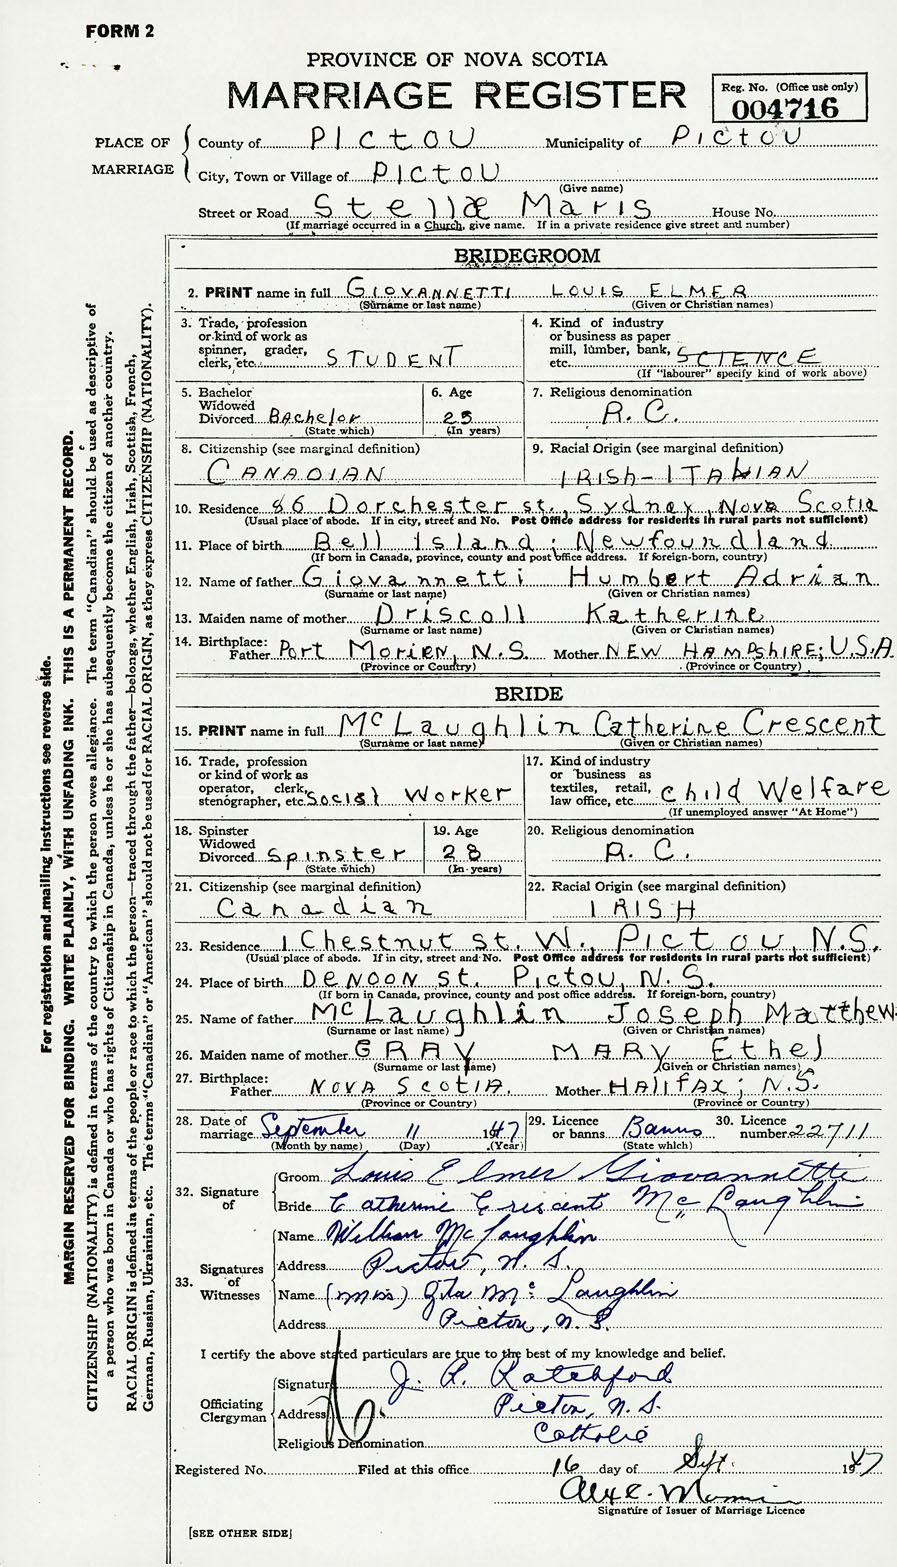 FORM 2
PROVINCE OF NOVA SCOTIA
MARRIAGE REGISTER
Reg. No. (Office use only)
004716
PLACE OF MARRIAGE
County of PICTOU Municipality of PICTOU
City, Town or Village of PICTOU
(Give name)
Street or Road Stellæ Maris House No.
(If marriage occurred in a Church, give name. If in a private residence give street and number)
BRIDEGROOM
2. PRINT name in full GIOVANNETTI LOUIS ELMER
(Surname or last name) (Given or Christian names)
3. Trade, profession or kind of work as spinner, grader, clerk, etc. STUDENT
4. Kind of industry or business as paper mill, lumber, bank, etc. SCIENCE
(If "labourer" specify kind of work above)
5. Bachelor Widowed Divorced Bachelor
(State which)
6. Age 25
(In years)
7. Religious denomination
R.C.
8. Citizenship (see marginal definition)
CANADIAN
9. Racial Origin (see marginal definition)
IRISH-ITALIAN
10. Residence 86 Dorchester st., Sydney, Nova Scotia
(Usual place of abode. If in city, street and No. Post Office address for residents in rural parts not sufficient)
11. Place of birth Bell Island; Newfoundland
(If born in Canada, province, county and post office address. If foreign-born, country)
12. Name of father Giovannetti Humbert Adrian
(Surname or last name) (Given or Christian names)
13. Maiden name of mother Driscoll Katherine
(Surname or last name) (Given or Christian names)
14. Birthplace:
Father Port MORIEN, N.S. Mother NEW HAMPSHIRE; U.S.A
(Province or Country) (Province or Country)
BRIDE
15. PRINT name in full McLaughlin Catherine Crescent
(Surname or last name) (Given or Christian names)
16. Trade, profession or kind of work as operator, clerk, stenographer, etc. Social Worker
17. Kind of industry or business as textiles, retail, law office, etc. Child Welfare
(If unemployed answer "At Home")
18. Spinster Widowed Divorced Spinster
(State which)
19. Age 28
(In years)
20. Religious denomination
R.C.
21. Citizenship (see marginal definition)
Canadian
22. Racial Origin (see marginal definition)
IRISH
23. Residence 1 Chestnut st. W., Pictou, N.S.
(Usual place of abode. If in city, street and No. Post Office address for residents in rural parts not sufficient)
24. Place of birth DENOON st. Pictou, N.S.
(If born in Canada, province, county and post office address. If foreign-born, country)
25. Name of father McLaughlin Joseph Matthew
(Surname or last name) (Given or Christian names)
26. Maiden name of mother GRAY MARY Ethel
(Surname or last name) (Given or Christian names)
27. Birthplace:
Father NOVA SCOTIA. Mother HALIFAX; N.S.
(Province or Country) (Province or Country)
28. Date of marriage September 11 1947
(Month by name) (Day) (Year)
29. Licence or banns Banns
(State which)
30. Licence number 22711
32. Signature of
Groom Louis Elmer Giovannetti
Bride Catherine Crescent McLaughlin
33. Signatures of Witnesses
Name William McLaughlin
Address Pictou, N.S.
Name (Miss) Mc Laughlin
Address Pictou, N.S.
I certify the above stated particulars are true to the best of my knowledge and belief.
Officiating Clergyman
Signature J. R. Ratchford
Address Pictou, N.S.
Religious Denomination Catholic
Registered No. Filed at this office 16 day of Sept. 1947
Signature of Issuer of Marriage Licence
[SEE OTHER SIDE]
For registration and mailing instructions see reverse side.
MARGIN RESERVED FOR BINDING. WRITE PLAINLY, WITH UNFADING INK. THIS IS A PERMANENT RECORD.
CITIZENSHIP (NATIONALITY) is defined in terms of the country to which the person owes allegiance. The term "Canadian" should be used as descriptive of
a person who was born in Canada or who has rights of Citizenship in Canada, unless he or she has subsequently become the citizen of another country.
RACIAL ORIGIN is defined in terms of the people or race to which the person—traced through the father—belongs, whether English, Irish, Scottish, French,
German, Russian, Ukrainian, etc. The terms "Canadian" or "American" should not be used for RACIAL ORIGIN, as they express CITIZENSHIP (NATIONALITY).